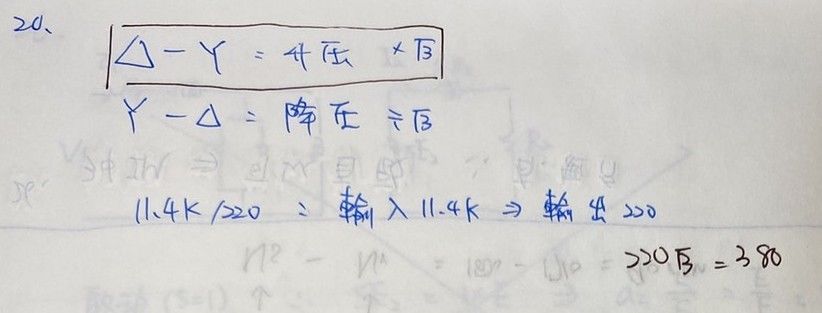 20、
△-Y = 升压 ×√3
Y-△ = 降压 ÷√3
11.4K/220 : 輸入11.4K ⇒ 輸出220
220√3 = 380